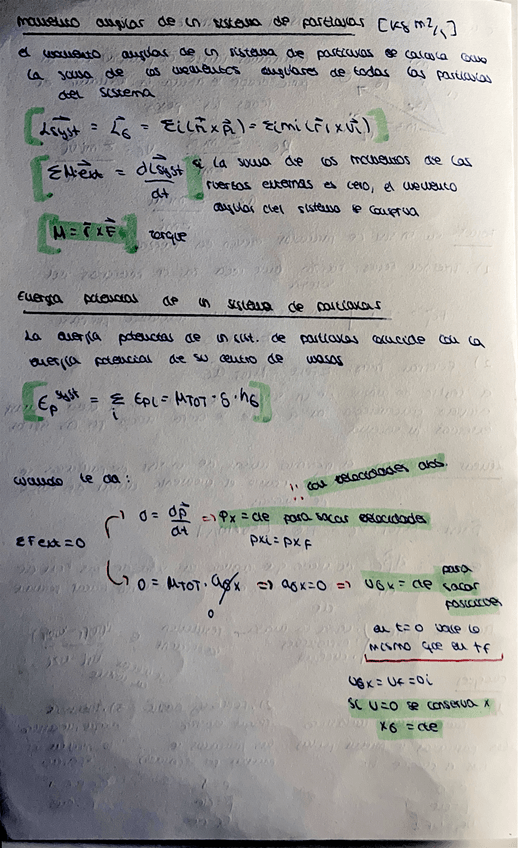 momento angular de un sistema de partículas [kg m²/s]
el momento angular de un sistema de partículas se calcula como
la suma de los momentos angulares de todas las partículas
del sistema
[L⃗syst = L⃗G = Σi(r⃗i x p⃗i) = Σi mi (r⃗i x v⃗i)]
[ΣM⃗ext = dL⃗syst/dt] si la suma de los momentos de las
fuerzas externas es cero, el momento
angular del sistema se conserva
[M = r⃗ x F⃗] torque
Energía potencial de un sistema de partículas
La energía potencial de un sist. de partículas coincide con la
energía potencial de su centro de masas
[Ep^syst = Σi Epi = MTOT · g · hG]
cuando le da:
con velocidades abs.
ΣFext = 0
0 = dp⃗/dt => Px = cte para sacar velocidades
Pxi = Pxf
0 = MTOT · aGx => aGx = 0 => vGx = cte para sacar posiciones
0
en t=0 vale lo
mismo que en tf
vGx = vf = 0i
si v=0 se conserva x
xG = cte